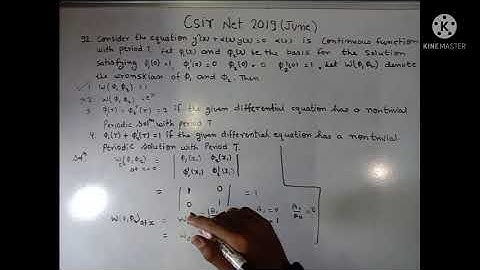 CSIR Net 2019 (June)
92. Consider the equation y''(x) + α(x) y(x) = 0 α(x) is Continuous function
with period T. Let ϕ₁(x) and ϕ₂(x) be the basis for the solution
satisfying ϕ₁(0)=1, ϕ₁'(0)=0 ϕ₂(0)=0 ϕ₂'(0)=1. Let W(ϕ₁,ϕ₂) denote
the wronskian of ϕ₁ and ϕ₂. Then
1. W(ϕ₁,ϕ₂) = 1
2. W(ϕ₁,ϕ₂) = eˣ
3. ϕ₁(T) + ϕ₂'(T) = 2 if the given differential equation has a nontrivial
Periodic solⁿ with period T
4. ϕ₁(T) + ϕ₂'(T) = 1 if the given differential equation has a nontrivial
Periodic solution with Period T.
Solⁿ W(ϕ₁,ϕ₂) = | ϕ₁(x) ϕ₂(x) |
at x=0 | ϕ₁'(x) ϕ₂'(x) |
= | 1 0 | = 1
| 0 1 |
at x =
=
KINEMASTER